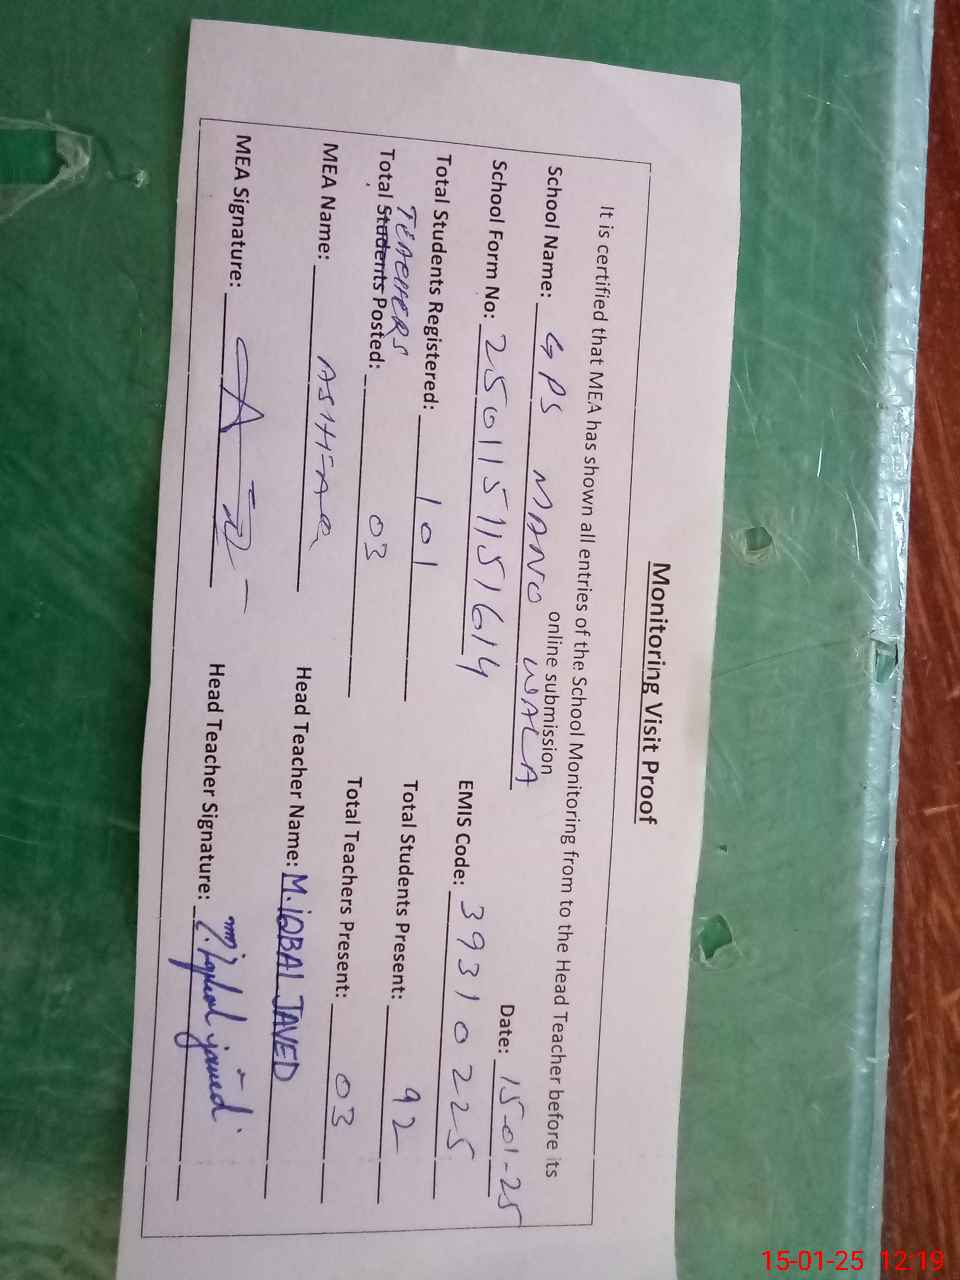 Monitoring Visit Proof
It is certified that MEA has shown all entries of the School Monitoring from to the Head Teacher before its
online submission
School Name: GPS MANO WALA Date: 15-01-25
School Form No: 2501151151614 EMIS Code: 39310225
Total Students Registered: 101 Total Students Present: 92
TEACHERS
Total Students Posted: 03 Total Teachers Present: 03
MEA Name: ASHFAQ Head Teacher Name: M.iQBAL JAVED
MEA Signature: Head Teacher Signature:
15-01-25 12:19